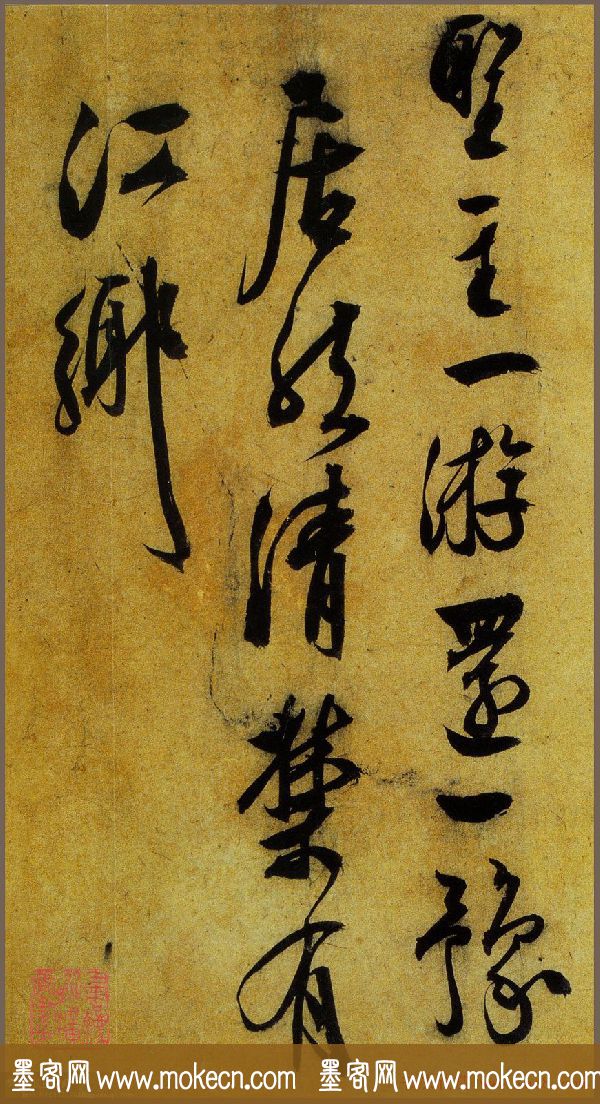 聖主一游還一豫
居然清禁有
江鄉
墨客网 www.mokecn.com 墨客网 www.mokecn.com